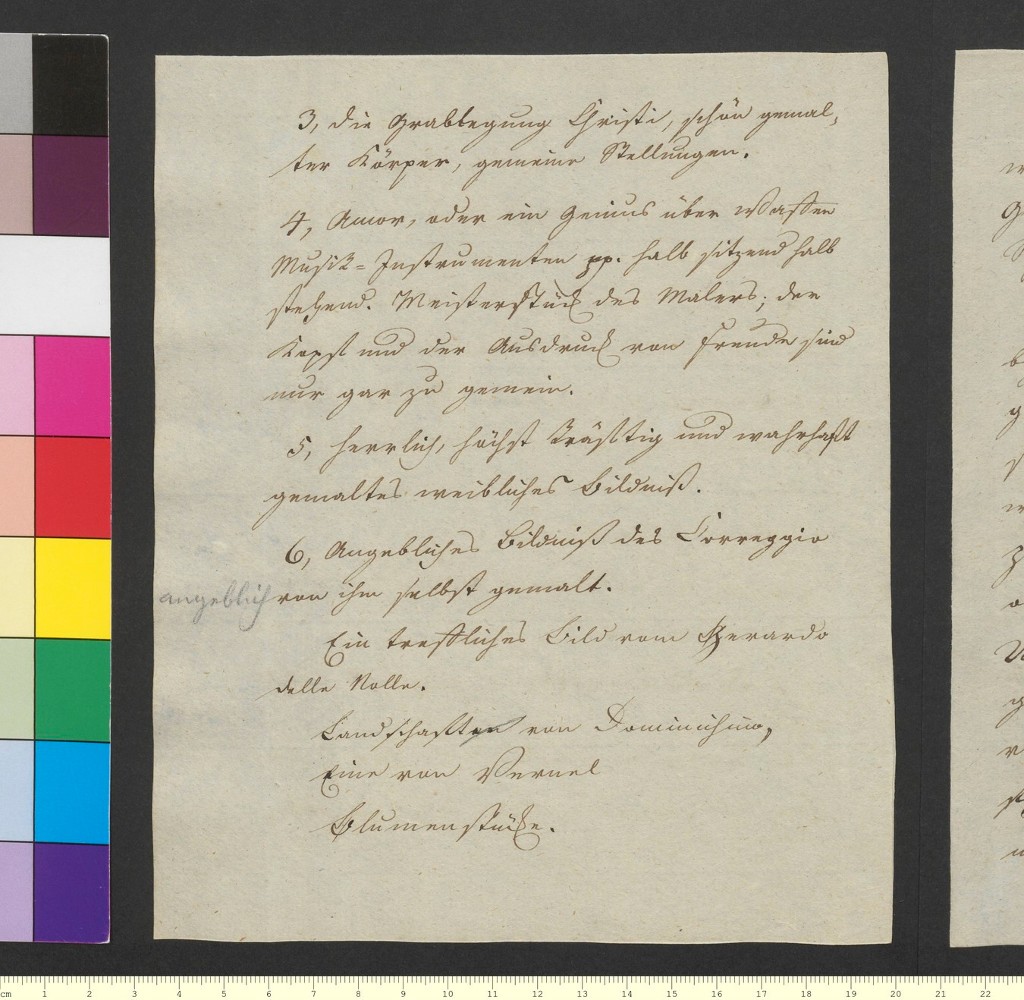 3, die Grablegung Christi, schön gemal,
ter Körper, gemeine Stellungen.
4, Amor, oder ein Genius über Waffen
Musik=Instrumenten pp. halb sitzend halb
stehend. Meisterstück des Malers; der
Kopf und der Ausdruck von Freude sind
nur gar zu gemein.
5, herrlich, höchst kräfftig und wahrhafft
gemaltes weibliches Bildniß.
6, Angebliches Bildniß des Correggio
angeblich von ihm selbst gemalt.
Ein treffliches Bild vom Gherardo
delle Notte.
Landschafften von Dominichino,
Eine von Vernet
Blumenstücke.
cm 1 2 3 4 5 6 7 8 9 10 11 12 13 14 15 16 17 18 19 20 21 22